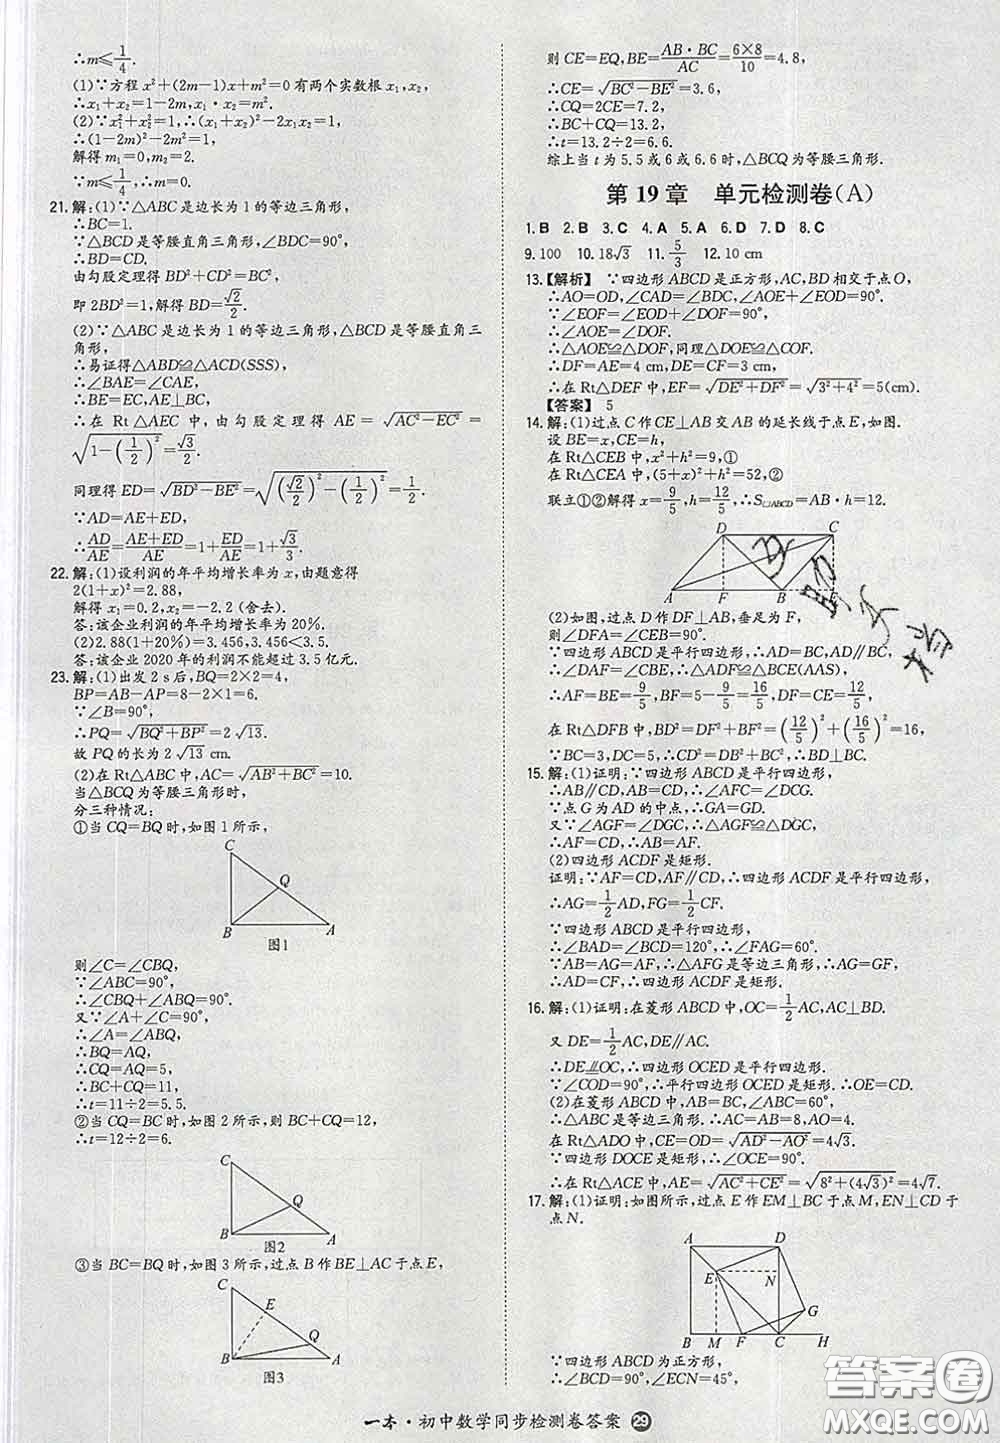 ∴m≤1/4.
(1)∵方程 x²+(2m-1)x+m²=0 有两个实数根 x₁,x₂,
∴x₁+x₂=1-2m,x₁·x₂=m².
(2)∵x₁²+x₂²=1,∴(x₁+x₂)²-2x₁x₂=1,
∴(1-2m)²-2m²=1,
解得 m₁=0,m₂=2.
∵m≤1/4,∴m=0.
21.解:(1)∵△ABC是边长为1的等边三角形,
∴BC=1.
∵△BCD是等腰直角三角形,∠BDC=90°,
∴BD=CD.
由勾股定理得 BD²+CD²=BC²,
即 2BD²=1,解得 BD=√2/2.
(2)∵△ABC是边长为1的等边三角形,△BCD是等腰直角三
角形,
∴易证得△ABD≌△ACD(SSS),
∴∠BAE=∠CAE,
∴BE=EC,AE⊥BC,
∴在 Rt△AEC 中,由勾股定理得 AE=√(AC²-EC²)=
√(1-(1/2)²)=√3/2.
同理得 ED=√(BD²-BE²)=√((√2/2)²-(1/2)²)=1/2.
∵AD=AE+ED,
∴AD/AE=(AE+ED)/AE=1+ED/AE=1+√3/3.
22.解:(1)设利润的年平均增长率为 x,由题意得
2(1+x)²=2.88,
解得 x₁=0.2,x₂=-2.2(舍去).
答:该企业利润的年平均增长率为20%.
(2)2.88(1+20%)=3.456,3.456<3.5.
答:该企业2020年的利润不能超过3.5亿元.
23.解:(1)出发 2 s后,BQ=2×2=4,
BP=AB-AP=8-2×1=6.
∵∠B=90°,
∴PQ=√(BQ²+BP²)=2√13.
故 PQ的长为2√13 cm.
(2)在Rt△ABC中,AC=√(AB²+BC²)=10.
当△BCQ为等腰三角形时,
分三种情况:
①当 CQ=BQ时,如图1所示,
C
Q
B A
图1
则∠C=∠CBQ,
∵∠ABC=90°,
∴∠CBQ+∠ABQ=90°.
又∵∠A+∠C=90°,
∴∠A=∠ABQ,
∴BQ=AQ,
∴CQ=AQ=5,
∴BC+CQ=11,
∴t=11÷2=5.5.
②当 CQ=BC时,如图2所示,则 BC+CQ=12,
∴t=12÷2=6.
C
Q
B A
图2
③当 BC=BQ时,如图3所示,过点B作BE⊥AC于点E,
C
E
Q
B A
图3
则 CE=EQ,BE=(AB·BC)/AC=(6×8)/10=4.8,
∴CE=√(BC²-BE²)=3.6,
∴CQ=2CE=7.2,
∴BC+CQ=13.2,
∴t=13.2÷2=6.6.
综上当 t为5.5或6或6.6时,△BCQ为等腰三角形.
第19章 单元检测卷(A)
1.B 2.B 3.C 4.A 5.A 6.D 7.D 8.C
9.100 10.18√3 11.5/3 12.10 cm
13.【解析】 ∵四边形ABCD是正方形,AC,BD相交于点O,
∴AO=OD,∠CAD=∠BDC,∠AOE+∠EOD=90°.
∵∠EOF=∠EOD+∠DOF=90°,
∴∠AOE=∠DOF.
∴△AOE≌△DOF,同理△DOE≌△COF.
∴DF=AE=4 cm,DE=CF=3 cm.
∴在 Rt△DEF中,EF=√(DE²+DF²)=√(3²+4²)=5(cm).
【答案】 5
14.解:(1)过点C作CE⊥AB交AB的延长线于点E,如图.
设 BE=x,CE=h,
在Rt△CEB中,x²+h²=9,①
在Rt△CEA中,(5+x)²+h²=52,②
联立①②解得 x=9/5,h=12/5,∴S▱ABCD=AB·h=12.
D C
A F B E
(2)如图,过点D作DF⊥AB,垂足为F,
则∠DFA=∠CEB=90°.
∵四边形ABCD是平行四边形,∴AD=BC,AD∥BC,
∴∠DAF=∠CBE,∴△ADF≌△BCE(AAS),
∴AF=BE=9/5,BF=5-9/5=16/5,DF=CE=12/5,
在Rt△DFB中,BD²=DF²+BF²=(12/5)²+(16/5)²=16,
∵BC=3,DC=5,∴CD²=DB²+BC²,∴BD⊥BC.
15.解:(1)证明:∵四边形ABCD是平行四边形,
∴AB∥CD,AB=CD,∴∠AFC=∠DCG.
∵点G为AD的中点,∴GA=GD.
又∵∠AGF=∠DGC,∴△AGF≌△DGC,
∴AF=CD,∴AB=AF.
(2)四边形ACDF是矩形.
证明:∵AF=CD,AF∥CD,∴四边形ACDF是平行四边形,
∴AG=1/2AD,FG=1/2CF.
∵四边形ABCD是平行四边形,
∴∠BAD=∠BCD=120°,∴∠FAG=60°.
∵AB=AG=AF,∴△AFG是等边三角形,∴AG=GF,
∴AD=CF,∴四边形ACDF是矩形.
16.解:(1)证明:在菱形ABCD中,OC=1/2AC,AC⊥BD.
又 DE=1/2AC,DE∥AC.
∴DE⫽OC,∴四边形OCED是平行四边形.
∵∠COD=90°,∴平行四边形OCED是矩形.
(2)在菱形ABCD中,AB=BC,∠ABC=60°,
∴△ABC是等边三角形,∴AC=AB=8,AO=4.
在Rt△ADO中,CE=OD=√(AD²-AO²)=4√3.
∵四边形DOCE是矩形,
∴在 Rt△ACE中,AE=√(AC²+CE²)=√(8²+(4√3)²)=4√7.
17.解:(1)证明:如图所示,过点E作EM⊥BC于点M,EN⊥CD于
点N.
A D
E N
G
B M F C H
∵四边形ABCD为正方形,
∴∠BCD=90°,∠ECN=45°,
答案圈
MXQE.COM
一本·初中数学同步检测卷答案 29